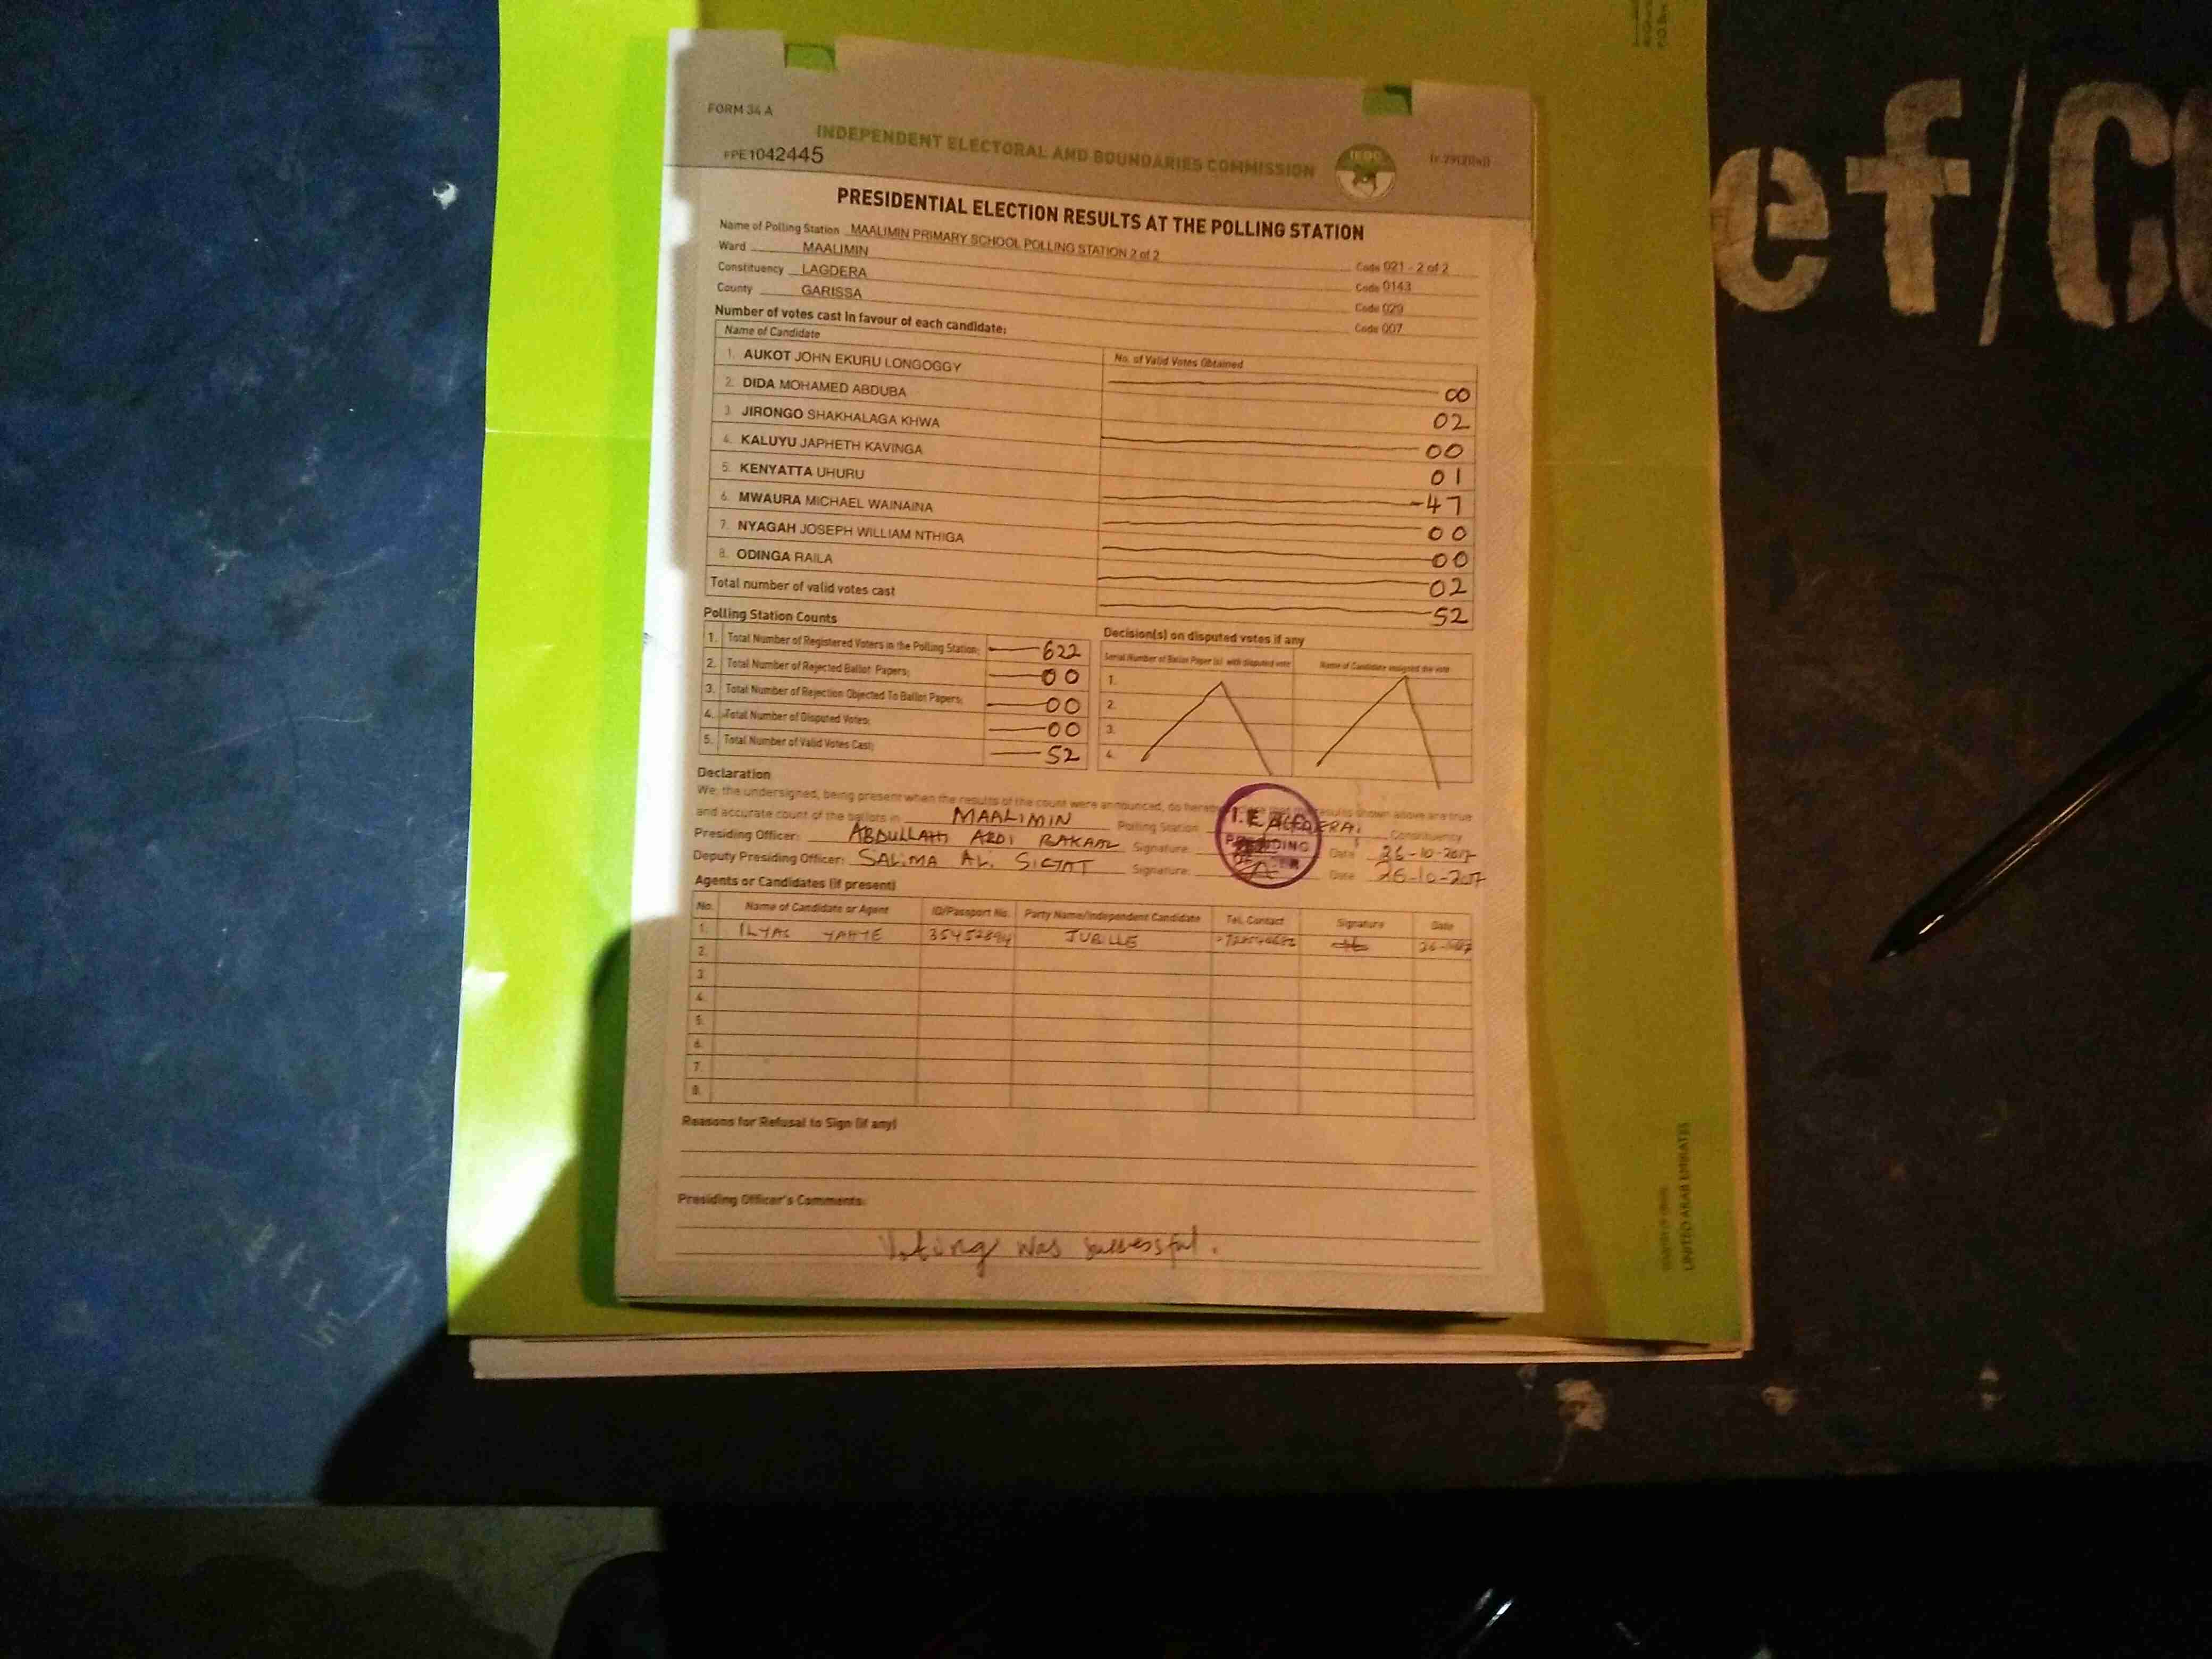 FORM 34 A
INDEPENDENT ELECTORAL AND BOUNDARIES COMMISSION
IEBC
FPE1042445
PRESIDENTIAL ELECTION RESULTS AT THE POLLING STATION
Name of Polling Station MAALIMIN PRIMARY SCHOOL POLLING STATION 2 of 2 Code 021 - 2 of 2
Ward MAALIMIN Code 0143
Constituency LAGDERA Code 029
County GARISSA Code 007
Number of votes cast in favour of each candidate:
Name of Candidate No. of Valid Votes Obtained
1. AUKOT JOHN EKURU LONGOGGY 00
2. DIDA MOHAMED ABDUBA 02
3. JIRONGO SHAKHALAGA KHWA 00
4. KALUYU JAPHETH KAVINGA 01
5. KENYATTA UHURU 47
6. MWAURA MICHAEL WAINAINA 00
7. NYAGAH JOSEPH WILLIAM NTHIGA 00
8. ODINGA RAILA 02
Total number of valid votes cast 52
Polling Station Counts
1. Total Number of Registered Voters in the Polling Station; 622
2. Total Number of Rejected Ballot Papers; 00
3. Total Number of Rejection Objected To Ballot Papers; 00
4. Total Number of Disputed Votes; 00
5. Total Number of Valid Votes Cast; 52
Decision(s) on disputed votes if any
Serial Number of Ballot Paper (s) with disputed vote Name of Candidate assigned the vote
1.
2.
3.
4.
Declaration
We, the undersigned, being present when the results of the count were announced, do hereby declare that the results shown above are true
and accurate count of the ballots in MAALIMIN Polling Station LAGDERA Constituency
Presiding Officer: ABDULLAHI ABDI Signature: Date 26-10-2017
Deputy Presiding Officer: SALIMA Signature: Date 26-10-2017
PRESIDING
Agents or Candidates (if present)
No. Name of Candidate or Agent ID/Passport No. Party Name/Independent Candidate Tel. Contact Signature Date
1. ILYAS YAHYE JUBILLE
2.
3.
4.
5.
6.
7.
8.
Reasons for Refusal to Sign (if any)
Presiding Officer's Comments:
Voting was successful.
ef/CU
UNITED ARAB EMIRATES